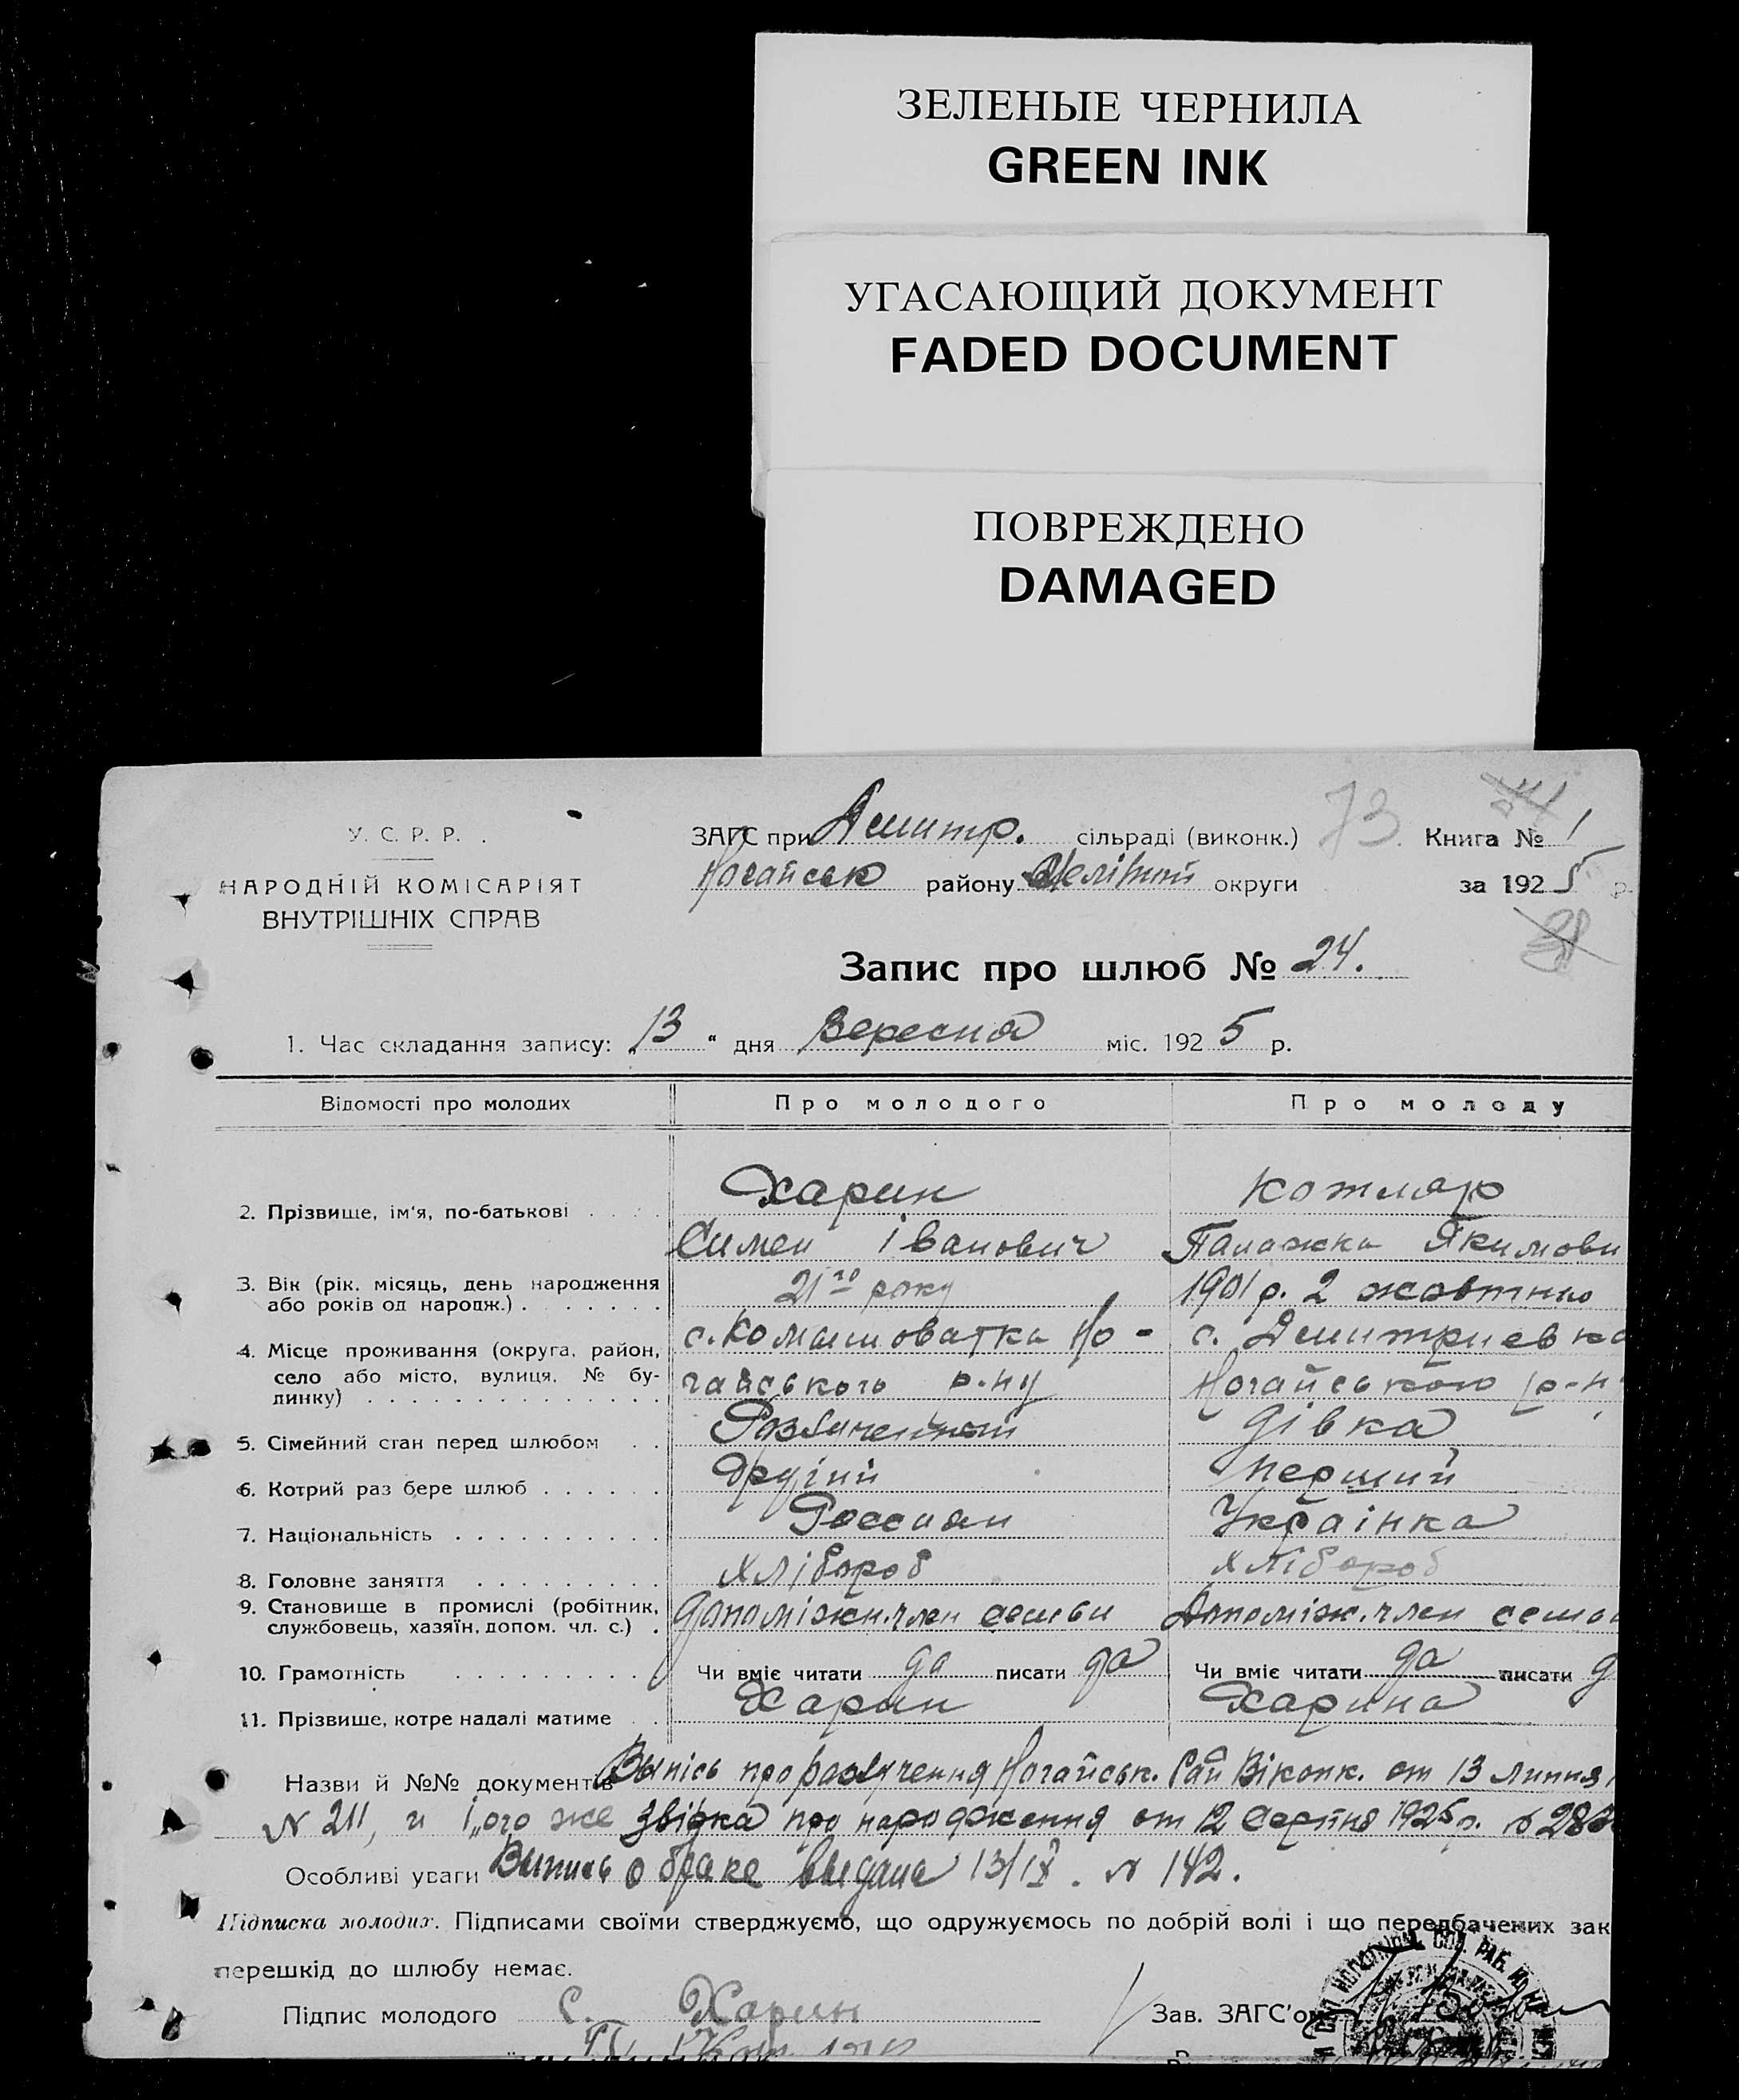 ЗЕЛЕНЫЕ ЧЕРНИЛА
GREEN INK
УГАСАЮЩИЙ ДОКУМЕНТ
FADED DOCUMENT
ПОВРЕЖДЕНО
DAMAGED
У. С. Р. Р.
НАРОДНІЙ КОМІСАРІЯТ
ВНУТРІШНІХ СПРАВ
ЗАГС при Дмитр. сільраді (виконк.) 73. Книга № 1
Ногайськ району округи за 1925 р.
Запис про шлюб № 24.
1. Час складання запису: „13“ дня Вересня міс. 1925 р.
Відомості про молодих Про молодого Про молоду
2. Прізвище, ім'я, по-батькові Харин Котляр
Симен Іванович Палажка Якимовн
3. Вік (рік, місяць, день народження або років од народж.) 21го року 1901 р. 2 жовтню
4. Місце проживання (округа, район, село або місто, вулиця, № будинку) с. Комишоватка Но- с. Дмитриевка
гайського р-ну Ногайського р-н
5. Сімейний стан перед шлюбом Розлучений дівка
6. Котрий раз бере шлюб Другий Перший
7. Національність Россиян Українка
8. Головне заняття Хлібороб хлібороб
9. Становище в промислі (робітник, службовець, хазяїн, допом. чл. с.) допоміжн. член семьи Допоміж. член семьи
10. Грамотність Чи вміє читати да писати да Чи вміє читати да писати д
11. Прізвище, котре надалі матиме Харин Харина
Назви й №№ документів Выпісь про розлучення Ногайськ. Рай Віконк. от 13 липня
№ 211, и його же Звідка про народження от 12 Серпня 1925 р. № 28
Особливі уваги Выпись о браке выдана 13/IX. № 142.
Підписка молодих. Підписами своїми стверджуємо, що одружуємось по добрій волі і що передбачених зак
перешкід до шлюбу немає.
Підпис молодого С. Харин Зав. ЗАГС'ом